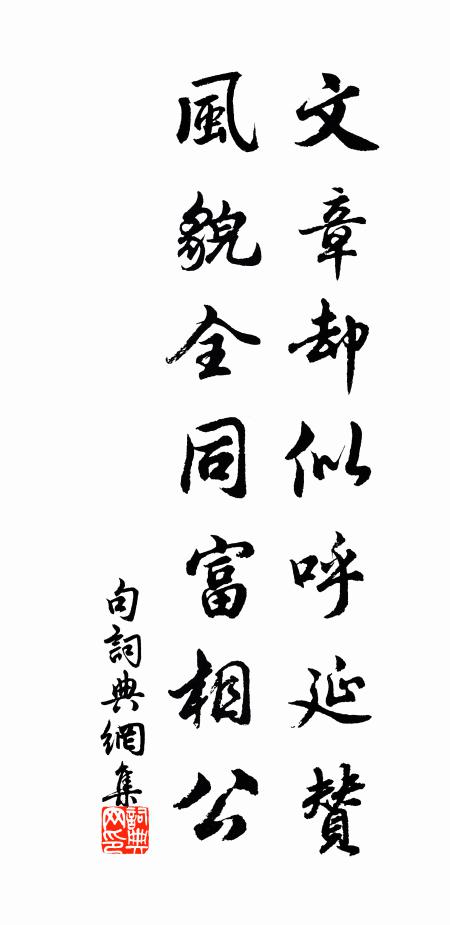 文章却似呼延贊
風貌全同富相公
句詞典網集
詞典网印